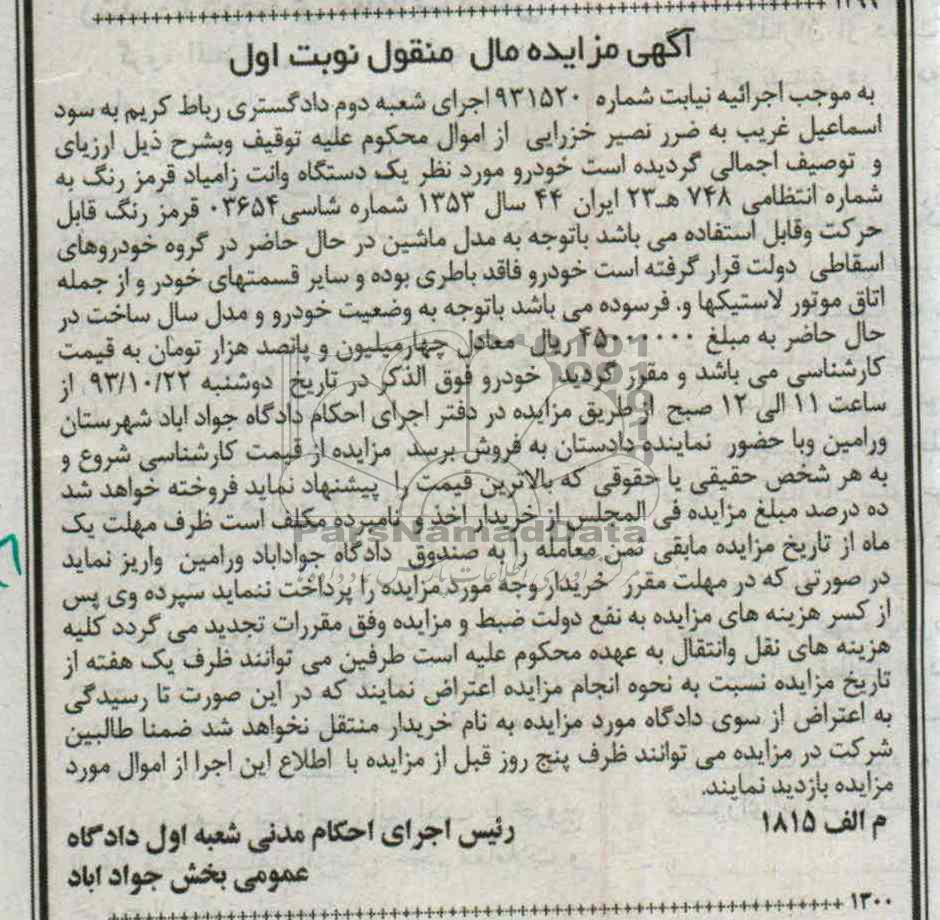 ۱۲۹۹
آگهی مزایده مال منقول نوبت اول
به موجب اجرائیه نیابت شماره ۹۳۱۵۲۰ اجرای شعبه دوم دادگستری رباط کریم به سود
اسماعیل غریب به ضرر نصیر خزرایی از اموال محکوم علیه توقیف وبشرح ذیل ارزیای
و توصیف اجمالی گردیده است خودرو مورد نظر یک دستگاه وانت زامیاد قرمز رنگ به
شماره انتظامی ۷۴۸ هـ۲۳ ایران ۴۴ سال ۱۳۵۳ شماره شاسی۰۳۶۵۴ قرمز رنگ قابل
حرکت وقابل استفاده می باشد باتوجه به مدل ماشین در حال حاضر در گروه خودروهای
اسقاطی دولت قرار گرفته است خودرو فاقد باطری بوده و سایر قسمتهای خودر و از جمله
اتاق موتور لاستیکها و. فرسوده می باشد باتوجه به وضعیت خودرو و مدل سال ساخت در
حال حاضر به مبلغ ۴۵۰۰۰۰۰۰ ریال معادل چهارمیلیون و پانصد هزار تومان به قیمت
کارشناسی می باشد و مقرر گردید خودرو فوق الذکر در تاریخ دوشنبه ۹۳/۱۰/۲۲ از
ساعت ۱۱ الی ۱۲ صبح از طریق مزایده در دفتر اجرای احکام دادگاه جواد اباد شهرستان
ورامین وبا حضور نماینده دادستان به فروش برسد مزایده از قیمت کارشناسی شروع و
به هر شخص حقیقی یا حقوقی که بالاترین قیمت را پیشنهاد نماید فروخته خواهد شد
ده درصد مبلغ مزایده فی المجلس از خریدار اخذ و نامبرده مکلف است ظرف مهلت یک
ماه از تاریخ مزایده مابقی ثمن معامله را به صندوق دادگاه جواداباد ورامین واریز نماید
در صورتی که در مهلت مقرر خریدار وجه مورد مزایده را پرداخت ننماید سپرده وی پس
از کسر هزینه های مزایده به نفع دولت ضبط و مزایده وفق مقررات تجدید می گردد کلیه
هزینه های نقل وانتقال به عهده محکوم علیه است طرفین می توانند ظرف یک هفته از
تاریخ مزایده نسبت به نحوه انجام مزایده اعتراض نمایند که در این صورت تا رسیدگی
به اعتراض از سوی دادگاه مورد مزایده به نام خریدار منتقل نخواهد شد ضمنا طالبین
شرکت در مزایده می توانند ظرف پنج روز قبل از مزایده با اطلاع این اجرا از اموال مورد
مزایده بازدید نمایند.
م الف ۱۸۱۵
رئیس اجرای احکام مدنی شعبه اول دادگاه
عمومی بخش جواد اباد
۱۳۰۰
ParsNamadData